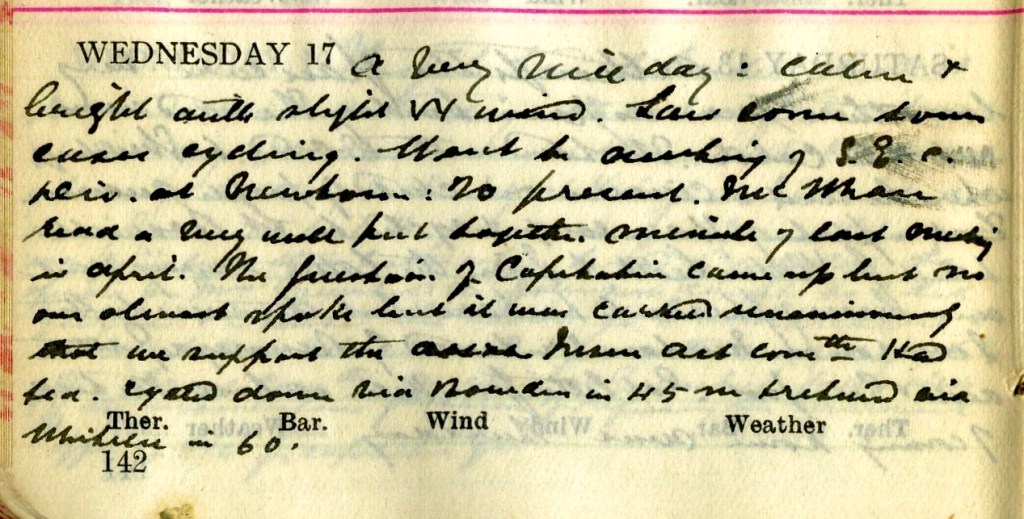 WEDNESDAY 17 A very nice day: calm &
bright with slight W wind. Saw some down
cases cycling. Went to meeting of S.E.C.
Div. at Newtown: 20 present. Mc
read a very well put together minute of last meeting
in April. The question of Capitation came up but no
one almost spoke but it was carried unanimously
that we support the Insur Act comtte Had
tea. Cycled down via Bowden in 45 m & returned via
in 60.
Ther. Bar. Wind Weather
142